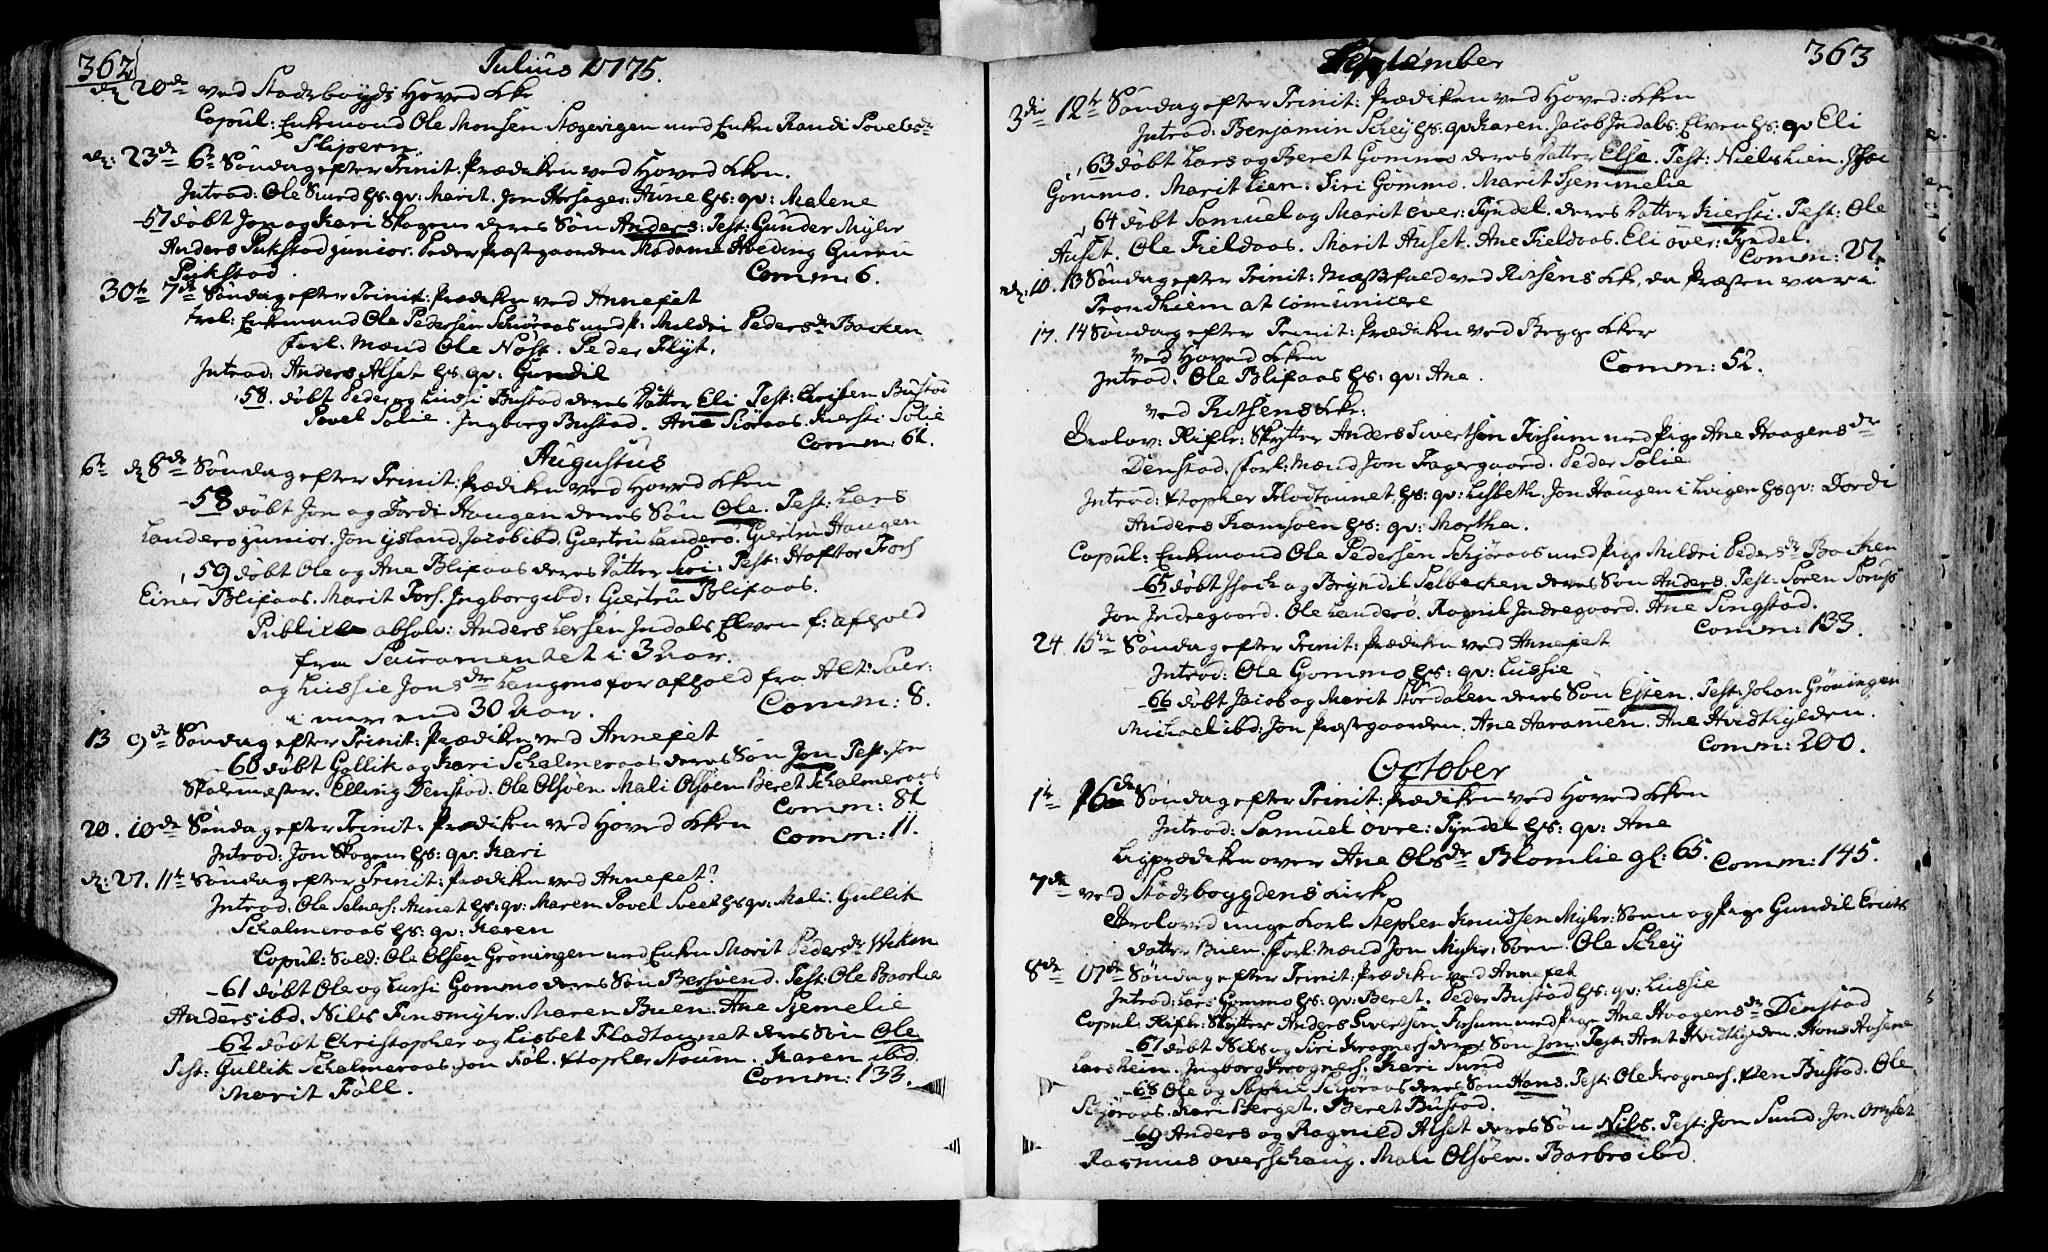 362
Julius 1775.
d: 20de ved Stadsboyds Hoved Kke
Copul: Enkemand Ole Monsen Stegevigen med Enken Randi Povelsdr
Slipern.
d: 23de 6te Søndag efter Trinit: Prædiken ved Hoved Kken.
Introd: Ole Sund hs: qv: Marit. Jon Aune hs: qv: Malene
57 døbt Jon og Kari Skogen deres Søn Anders. Test: Gunder Myhr
Anders Pukstad junior. Peder Præstegaarden Madame Hveding Guru
Pukstad. Comm: 6.
30te 7de Søndag efter Trinit: Prædiken ved Annexet
trol: Enkemand Ole Pedersen Schjøraas med p: Mildri Pedersdr Backen
forl: Mænd Ole Nøst. Peder Flyt.
Introd: Anders Alset hs: qv: Gundil
58. døbt Peder og Lussi Bustad deres Datter Eli Test: Christen Bustad
Povel Solie. Ingborg Bustad. Ane Kiersti Solie
Comm: 61.
Augustus
6te d: 8de Søndag efter Trinit: Prædiken ved Hoved Kken
58 døbt Jon og Dordi Haugen deres Søn Ole. Test: Lars
Landerø junior. Jon Ysland, Jacob ibd. Giertru Landerø. Giertru Haugen
59 døbt Ole og Ane Blixaas deres Datter Siri: Test: Haftor Fors
Einer Blixaas. Marit Fors. Ingborg ibd: Giertru Blixaas.
Publice absolv: Anders Larsen Indals Elven f: afhold
fra Sacramentet i 3 Aar.
og Lussie Jonsdr Langens for afhold fra Alt: Sacr:
i mer end 30 Aar. Comm: 8.
13 9de Søndag efter Trinit: Prædiken ved Annexet
60 døbt Gullik og Kari Schalmeraas deres Søn Jon Test: Jon
Skolemester. Elling Denstad. Ole Olsøen Mali Olsøen Beret Schalmeraas
Comm: 81
20. 10de Søndag efter Trinit: Prædiken ved Hoved Kken Comm: 11.
Introd: Jon Skogen hs: qv: Kari
d: 27. 11te Søndag efter Trinit: Prædiken ved Annexet
Introd: Ole Selnes: Aunet hs: qv: Maren Povel Sveet hs qv: Mali. Gullik
Schalmeraas hs: qv: Karen
Copul: Sold: Ole Olsen Grøningen med Enken Marit Pedersdr Viken
61 døbt Ole og Lussi Gommo deres Søn Bersvend. Test: Ole Baarlie
Anders ibd. Nils Finsmyhr. Maren Buen. Ane Tjemelie
62 døbt Christopher og Lisbet Fladtaunet deres Søn Ole
Test: Gullik Schalmeraas. Jon Føl. Xtopher Stoum. Karen ibd.
Marit Føll. Comm: 133.
363
September
3die 12te Søndag efter Trinit: Prædiken ved Hoved: Kken
Introd: Benjamin Schey hs: qv Karen. Jacob Indals: Elven hs: qv Eli
63 døbt Lars og Beret Gommo deres Datter Else. Test: Niels Lien.
Gommo. Marit Lien: Siri Gommo. Marit Tjemmelie
64 døbt Samuel og Marit Over: Tyndel. deres Datter Kiersti. Test: Ole
Auset. Ole Fieldaas. Marit Auset. Ane Fieldaas. Eli over: Tyndel.
Comm: 27.
d: 10. 13 Søndag efter Trinit: Messefald ved Ritsens Kke, da Præsten var i
Trondhiem at comunicere
17. 14 Søndag efter Trinit: Prædiken ved Begge Kker
ved Hoved Kken Comm: 52.
Introd: Ole Blixaas hs: qv: Ane.
ved Ritsens Kke:
Trolov: Rifle: Skytter Anders Sivertsen Forsum med Pige Ane Haagensdr
Denstad. forl: Mænd Jon Fagergaard. Peder Solie
Introd: Xtopher Fladtaunet hs: qv: Lisbeth. Jon Haugen i Lvigen hs qv: Dordi
Anders Ramsøen hs: qv: Martha.
Copul: Enkemand Ole Pedersen Schjøraas med Pige Mildri Pedersdr Backen
65 døbt Isach og Bryndil Selbecken deres Søn Anders. Test: Søren
Jon Indregaard. Ole Landerø. Ragnil Indregaard. Ane Singstad.
Comm: 133.
24. 15te Søndag efter Trinit: Prædiken ved Annexet
Introd: Ole Gommo hs: qv: Lussie
66 døbt Jacob og Marit Stordalen deres Søn Esten. Test: Johan Grøningen
Michael ibd: Jon Præstegaarden. Ane Aaramen. Ane Hvidthylden.
Comm: 200.
October
1te 16de Søndag efter Trinit: Prædiken ved Hoved Kken
Introd: Samuel Øvre: Tyndel hs: qv: Ane
Ligprædiken over Ane Olsdr Blomlie gl: 65. Comm: 145.
7de ved Stadsboygdens Kirke
Troloved unge Karl Stephen Knudsen Myhr: Sønn og Pige Gundil Erichs
datter Buen. forl: Mænd Jon Myhr: Sønn. Ole Schey
8de 17de Søndag efter Trinit: Prædiken ved Annexet
Introd: Lars Gommo hs: qv: Beret. Peder Bustad hs: qv: Lussie
Copul: Rifle: Skytter Anders Sivertsen Forsum med Pige Ane Haagensdr Denstad
67 døbt Nils og Siri Krognes deres Søn Jon: Test: Arnt Hvidthylden. Hans Aasene
Lars Hein. Ingborg Krognes. Kari Sund
68 Ole og Schjøraas deres Søn Hans. Test: Ole Krognes. Xten Bustad. Ole
Schjøraas. Kari Berget. Beret Bustad.
69 Anders og Ragnild Alset deres Søn Nils. Test: Jon Sund. Jon
Rasmus overschaug. Mali Olsøen. Barbro ibd.